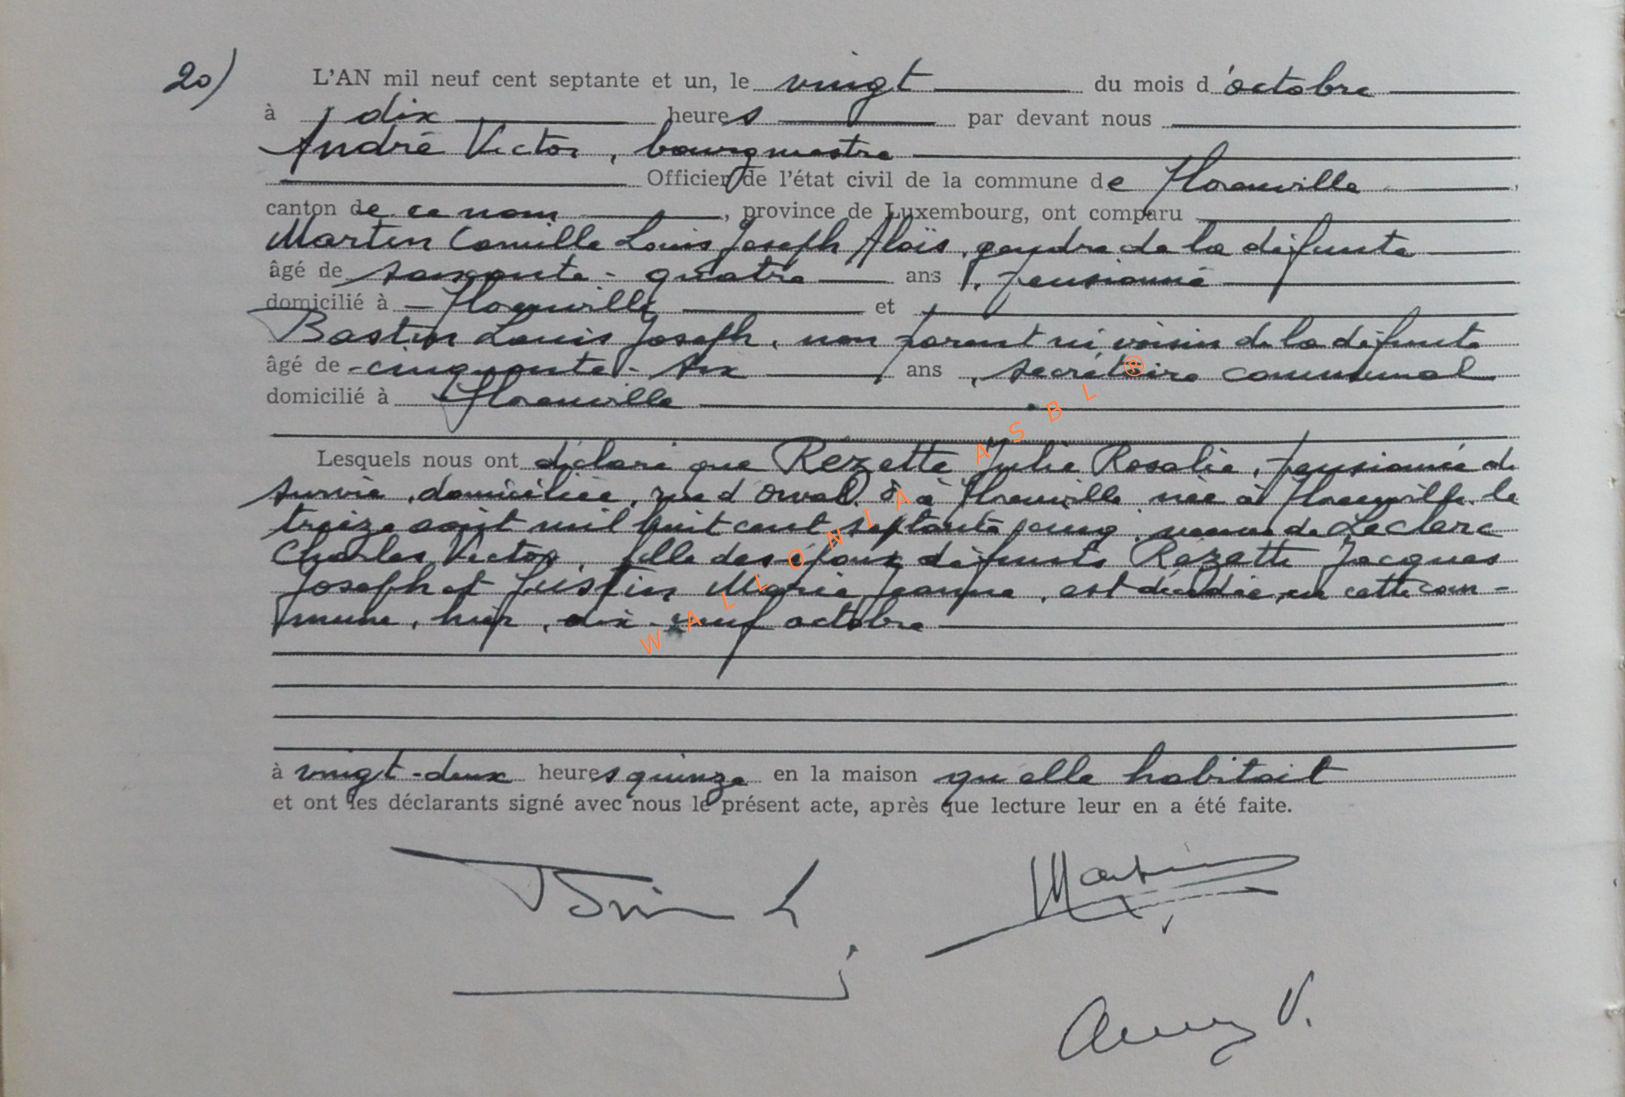 20)
L'AN mil neuf cent septante et un, le vingt du mois d'octobre
à dix heures par devant nous
André Victor, bourgmestre
Officier de l'état civil de la commune de Florenville
canton de ce nom, province de Luxembourg, ont comparu
Martin Camille Louis Joseph Aloïs, gendre de la défunte
âgé de soixante-quatre ans, pensionné
domicilié à Florenville et
Bastin Louis Joseph, non parent ni voisin de la défunte
âgé de cinquante-six ans, secrétaire communal
domicilié à Florenville
Lesquels nous ont déclaré que Rézette Julie Rosalie, pensionnée de
survie, domiciliée, rue d'Orval, à Florenville née à Florenville le
treize août mil huit cent septante cinq, veuve de Leclerc
Charles Victor, fille des époux défunts Rezette Jacques
Joseph et Justin Marie Jeanne, est décédée en cette com-
mune, hier, dix-neuf octobre
à vingt-deux heures quinze en la maison qu'elle habitait
et ont les déclarants signé avec nous le présent acte, après que lecture leur en a été faite.
Martin
WALLONIA ASBL ®